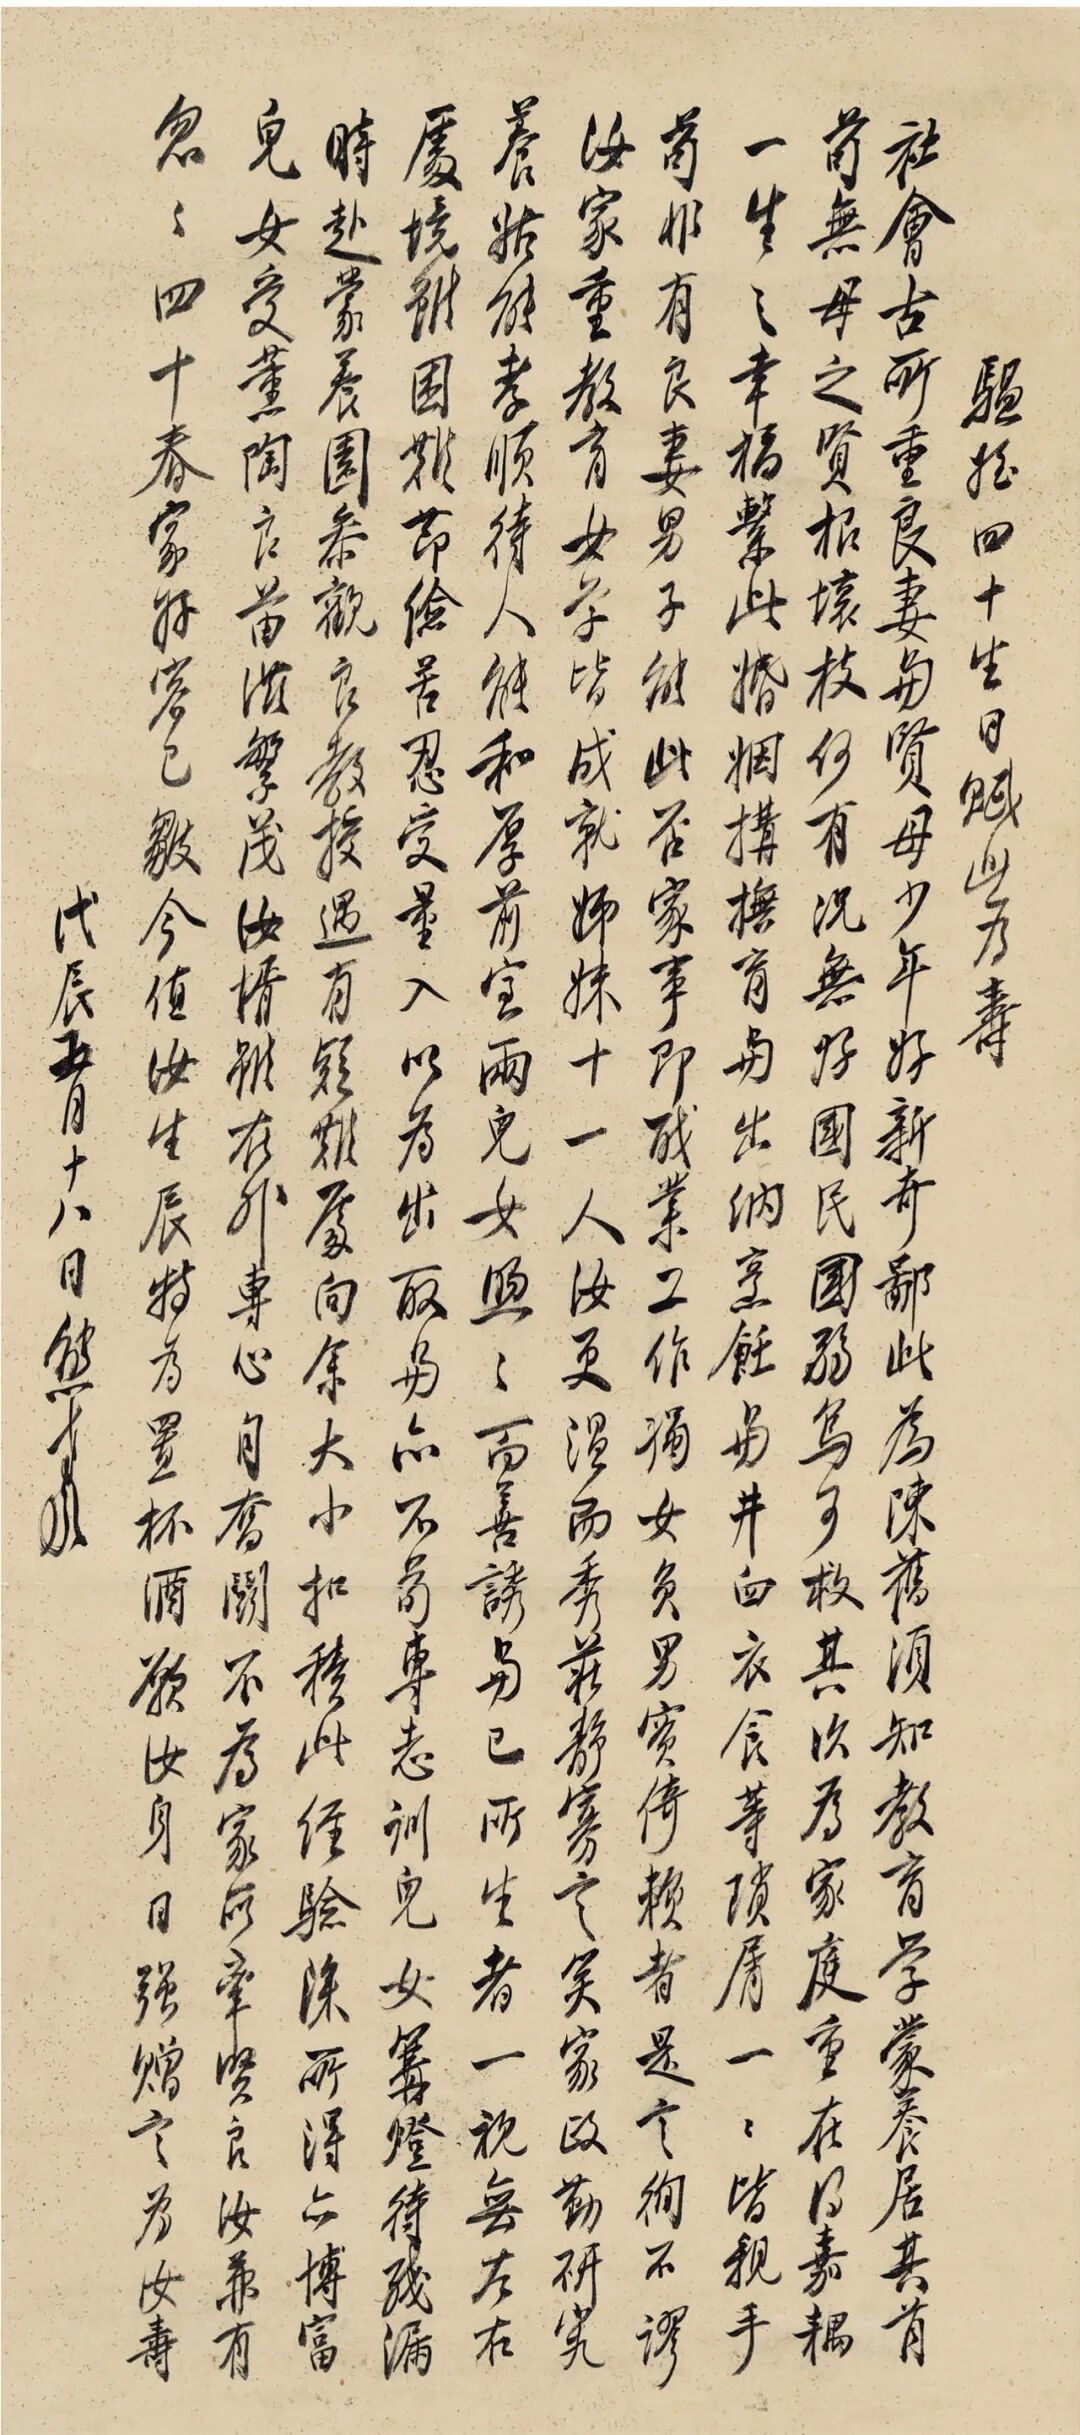 驅拴四十生日賦此为壽
社會古所重良妻与賢母少年好新奇鄙此為陳舊須知教育学蒙養居其首
苟無母之賢根壞枝何有況無好國民國弱烏可救其次為家庭重在得嘉耦
一生之幸福繫此婚姻搆撫育与出納烹飪与井臼衣食等瑣屑一一皆親手
苟非有良妻男子能此否家事即職業工作獨女負男實倚賴者是言殉不謬
汝家重教育女学皆成就姊妹十一人汝更溫而秀莊靜寡言笑家政勤研究
養姑能孝順待人能和厚前室兩兒女煦々而善誘与己所生者一視無左右
處境雖困難節儉苦忍受量入以為出取与亦不苟專志訓兒女篝燈待殘漏
時赴蒙養園參觀良教授遇有疑難處向余大小扣積此經驗深所得亦博富
兒女受薰陶良苗滋繁茂汝壻雖在外專心自奮鬪不為家所牽賢良汝兼有
忽々四十春家好容已皺今值汝生辰特为置杯酒願汝身日强贈言为汝壽
戊辰五月十八日熊